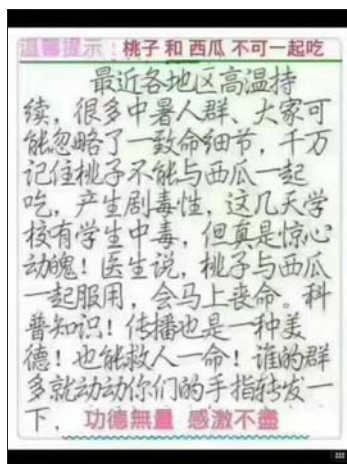 温馨提示！桃子 和 西瓜 不可一起吃
最近各地区高温持
续，很多中暑人群、大家可
能忽略了一致命细节，千万
记住桃子不能与西瓜一起
吃，产生剧毒性，这几天学
校有学生中毒，但真是惊心
动魄！医生说，桃子与西瓜
一起服用，会马上丧命。科
普知识！传播也是一种美
德！也能救人一命！谁的群
多就动动你们的手指转发一
下，功德無量 感激不盡